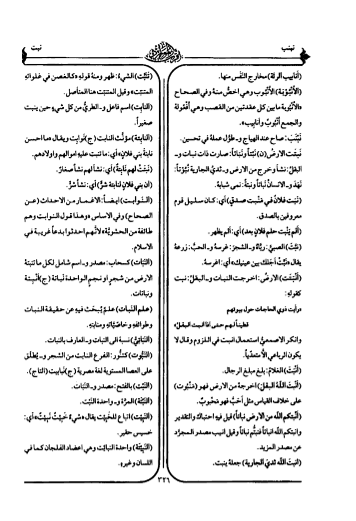 نبنب
نبت
(أنابيب الرئة) مخارج النَّفَس منها.
(الأُنْبُوبَة) الأُنْبُوب وهي اخصّ منهُ وفي الصحاح
«الأنبوبة ما بين كل عقدتين من القصب وهي أُفْعُولة
والجمع أُنْبُوب وأنابيب».
نَبْنَبَ: صاح عند الهياج و-طوّل عملهُ في تحسين.
نبتت الارض (ن) نَبْتاً ونَبَاتاً: صارت ذات نبات و-
البقلُ: نشأ وخرج من الارض و-ثديُ الجارية نُبُوتاً:
نَهَدَ و-الانسانُ نباتاً ونبتاً: نمى شبابهُ.
(نبت فلان في منبت صدق) أي: كان سليل قوم
معروفين بالصدق.
(ألم ينبت حلم فلان بعد) أي: ألم يظهر.
(نَبَّتَ) الصبيَّ: ربَّاهُ و-الشجرَ: غرسهُ و-الحبَّ: زرعهُ
يقال «نَبِّتْ أجلك بين عينيك» أي:
(أَنْبَتَت) الارضُ: اخرجت النبات و-البقلُ: نبت
كقوله:
«رأيت ذوي الحاجات حول بيوتهم
قطيناً لهم حتى اذا انبت البقلُ»
وانكر الاصمعيّ استعمال انبت في اللزوم وقال لا
يكون الرباعي إلّا متعدّياً.
(أَنْبَتَ) الغلامُ: بلغ مبلغ الرجال.
(أنبت اللهُ البقلَ): اخرجهُ من الارض فهو (مَنْبُوت)
على خلاف القياس مثل أحَبَّ فهو مَحْبُوب.
(أنبتكم الله من الارض نباتاً) قيل فيه احتباك والتقدير
وانبتكم الله انباتاً فنبتُّم نباتاً وقيل انيب مصدر المجرَّد
عن مصدر المزيد.
(انبت اللهُ ثديَ الجارية) جعلهُ ينبت.
(تَنَبَّتَ) الشيءُ: ظهر ومنهُ قولهُ «كالغصن في غلوائهِ
المتنبّتِ» وقيل المتنبّت هنا المتأصّل.
(النابت) اسم فاعل و-الطريّ من كل شيء حين ينبت
صغيراً.
(النابتة) مؤنّث النابت (ج) نوابِت ويقال «ما احسن
نابتةَ بني فلان» أي: ما تنبت عليهِ اموالهم واولادهم.
(نبتت لهم نابتة) أي: نشأ لهم نشأٌ صغار.
(ان بني فلان لنابتة شرّ) أي: نشأُ شرّ.
(النوابت) ايضاً: الاغمار من الاحداث (عن
الصحاح) وفي الاساس «وهذا قول النوابت وهم
طائفة من الحشويّة» لانَّهم احدثوا بدعاً غريبة في
الاسلام.
(النبات) كسحاب: مصدر و-اسم شامل لكل ما تنبتهُ
الارض من شجر او نجم الواحدة نباتة (ج) أَنْبِتة
ونباتات.
(علم النبات) علمٌ يُبحث فيهِ عن حقيقة النبات
وطوائفهِ وخاصّيّاتهِ ومنابتهِ.
(النَّبَاتيّ) نسبة الى النبات و-العارف بالنبات.
(النَّبُّوت) كتنّور: الفرع النابت من الشجر و-يُطلَق
على العصا المستوية لغة مصرية (ج) نبابيت (التاج).
(النَّبْت) بالفتح: مصدر و-النبات.
(النَّبْتَة) المرَّة و-واحدة النبت.
(النَّبِيت) اتباع للخبيث يقال «شيءٌ خبيثٌ نبيثٌ» أي:
خسيس حقير.
(النَّبِيتَة) واحدة النبائت وهي اعضاد الفلجان كما في
اللسان وغيرهِ.
٣٢٦